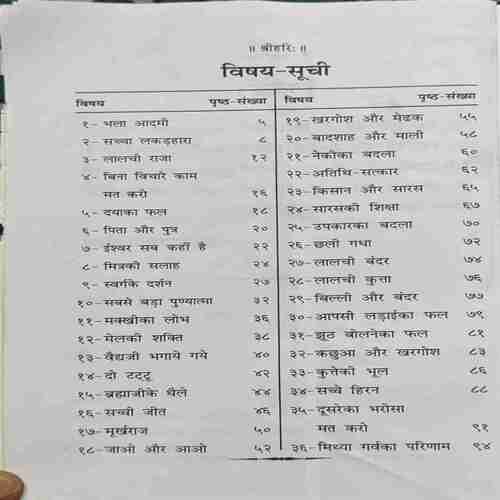 ॥ श्रीहरिः ॥
विषय-सूची
विषय पृष्ठ-संख्या
१- भला आदमी ५
२- सच्चा लकड़हारा ८
३- लालची राजा १२
४- बिना विचारे काम
मत करो १६
५- दयाका फल १८
६- पिता और पुत्र २०
७- ईश्वर सब कहीं है २२
८- मित्रकी सलाह २४
९- स्वर्गके दर्शन २७
१०- सबसे बड़ा पुण्यात्मा ३२
११- मक्खीका लोभ ३६
१२- मेलकी शक्ति ३८
१३- वैद्यजी भगाये गये ४०
१४- दो टट्टू ४२
१५- ब्रह्माजीके थैले ४४
१६- सच्ची जीत ४६
१७- मूर्खराज ५०
१८- जाओ और आओ ५२
विषय पृष्ठ-संख्या
१९- खरगोश और मेढक ५५
२०- बादशाह और माली ५८
२१- नेकीका बदला ६०
२२- अतिथि-सत्कार ६२
२३- किसान और सारस ६५
२४- सारसकी शिक्षा ६७
२५- उपकारका बदला ७०
२६- छली गधा ७२
२७- लालची बंदर ७४
२८- लालची कुत्ता ७६
२९- बिल्ली और बंदर ७७
३०- आपसी लड़ाईका फल ७९
३१- झूठ बोलनेका फल ८१
३२- कछुआ और खरगोश ८३
३३- कुत्तेकी भूल ८६
३४- सच्चे हिरन ८८
३५- दूसरेका भरोसा
मत करो ९१
३६- मिथ्या गर्वका परिणाम ९४